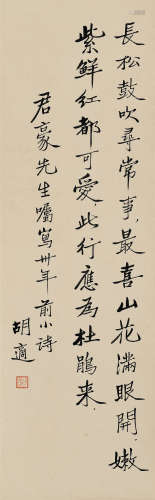 長松鼓吹尋常事，最喜山花滿眼開，嫩
紫鮮紅都可愛，此行應為杜鵑来。
君豪先生囑寫卅年前小詩
胡適